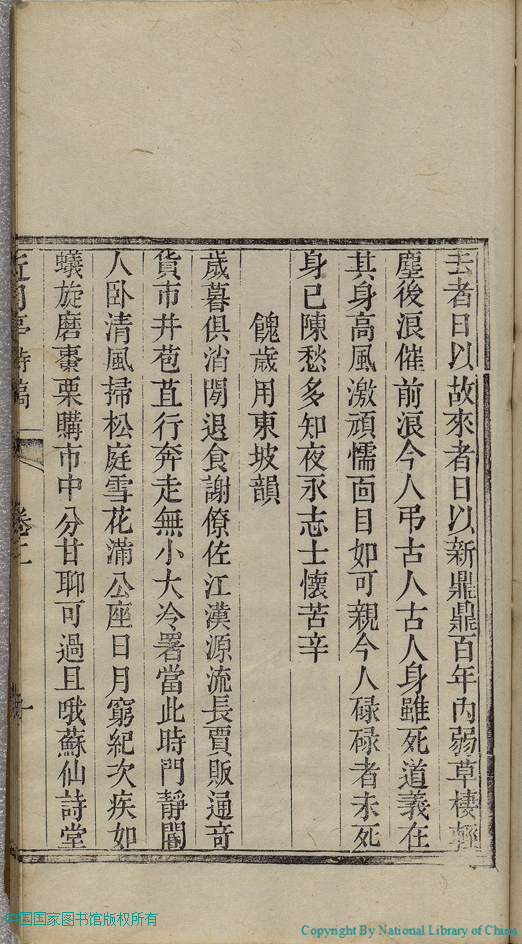 去者日以故來者日以新鼎鼎百年內弱草棲輕
塵後浪催前浪今人弔古人古人身雖死道義在
其身高風激頑懦面目如可親今人碌碌者未死
身已陳愁多知夜永志士懷苦辛
餽歲用東坡韻
歲暮俱消閒退食謝僚佐江漢源流長賈販通奇
貨市井苞苴行奔走無小大冷署當此時門靜闇
人卧清風掃松庭雪花滿公座日月窮紀次疾如
蟻旋磨棗栗購市中分甘聊可過且哦蘇仙詩堂
亭詩稿
卷二
中国国家图书馆版权所有
Copyright By National Library of China